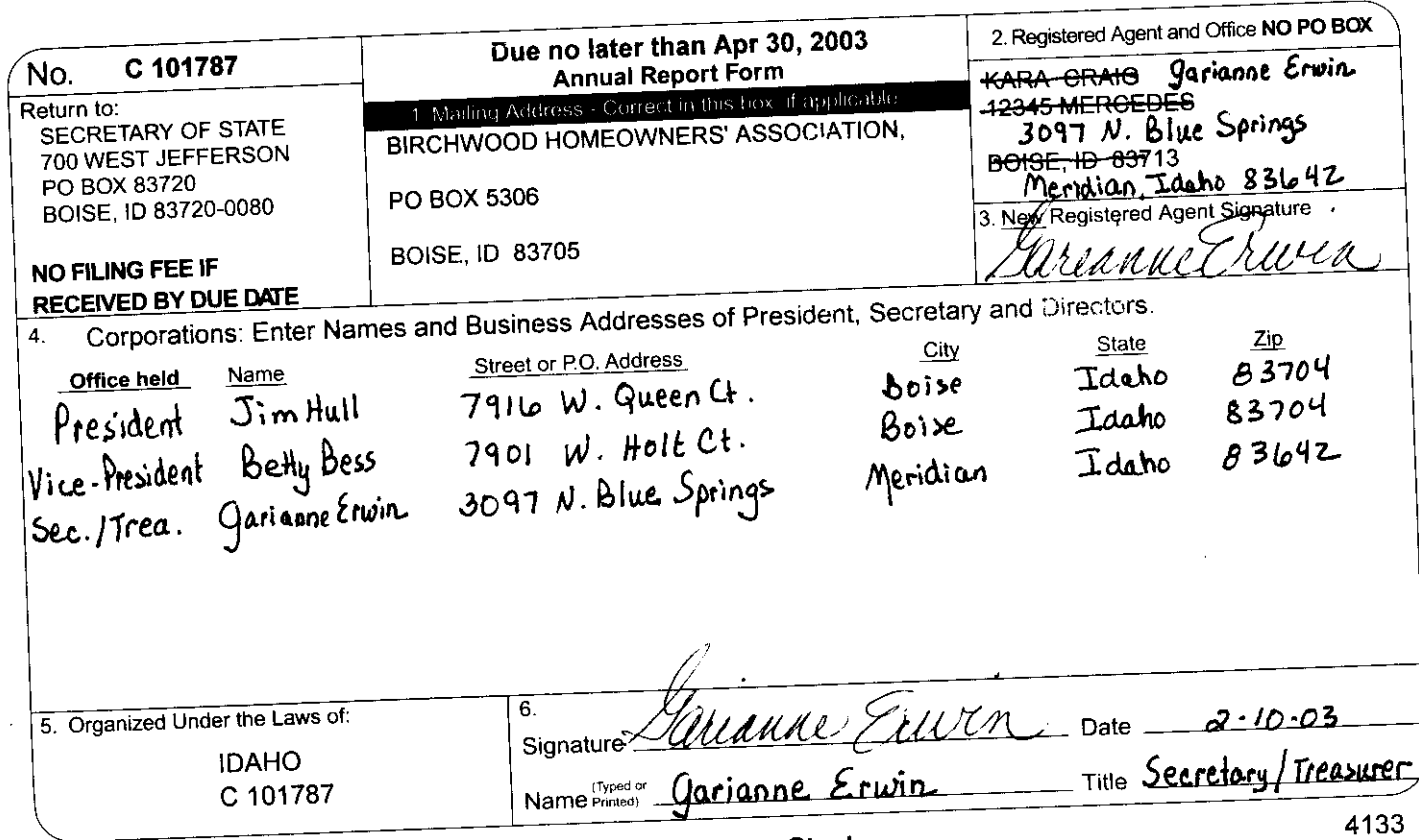 No. C 101787
Return to:
SECRETARY OF STATE
700 WEST JEFFERSON
PO BOX 83720
BOISE, ID 83720-0080
NO FILING FEE IF
RECEIVED BY DUE DATE
Due no later than Apr 30, 2003
Annual Report Form
1. Mailing Address - Correct in this box, if applicable
BIRCHWOOD HOMEOWNERS' ASSOCIATION,
PO BOX 5306
BOISE, ID 83705
2. Registered Agent and Office NO PO BOX
KARA CRAIG Garianne Erwin
12345 MERCEDES
3097 N. Blue Springs
BOISE, ID 83713
Meridian, Idaho 83642
3. New Registered Agent Signature
Garianne Erwin
4. Corporations: Enter Names and Business Addresses of President, Secretary and Directors.
Office held Name Street or P.O. Address City State Zip
President Jim Hull 7916 W. Queen Ct. Boise Idaho 83704
Vice-President Betty Bess 7901 W. Holt Ct. Boise Idaho 83704
Sec./Trea. Garianne Erwin 3097 N. Blue Springs Meridian Idaho 83642
5. Organized Under the Laws of:
IDAHO
C 101787
6.
Signature Garianne Erwin Date 2-10-03
Name (Typed or Printed) Garianne Erwin Title Secretary/Treasurer
4133